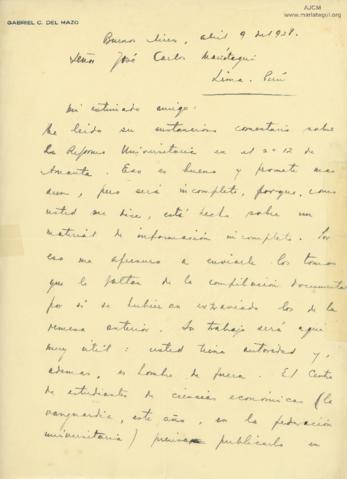 AJCM
www.mariategui.org
GABRIEL C. DEL MAZO
Buenos Aires, abril 9 de 1928.
Señor José Carlos Mariátegui
Lima - Perú
Mi estimado amigo:
He leído su sustancioso comentario sobre
la Reforma Universitaria en el nº 12 de
Amauta. Eso es bueno y promete mas
aun, pero será incompleto, porque, como
usted me dice, está hecho sobre un
material de información incompleto. Por
eso me apresuro a enviarle los tomos
que le faltan de la compilación documental
por si se hubieran extraviado los de la
remesa anterior. Su trabajo será aquí
muy útil: usted tiene autoridad y,
ademas, es hombre de fuera. El Centro
de estudiantes de ciencias económicas (la
vanguardia, este año, en la federación
universitaria) piensa publicarlo en